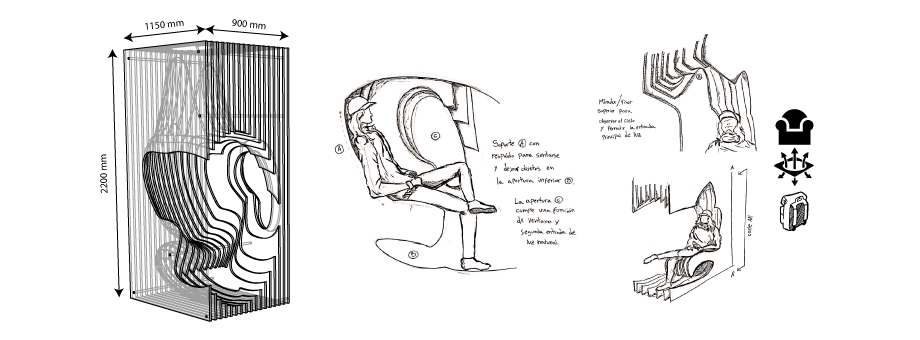 1150 mm
900 mm
2200 mm
A
C
B
Soporte A con
respaldo para sentarse
y dejar objetos en
la apertura inferior B.
La apertura C
cumple una función
de ventana y
segunda entrada de
luz natural.
Mirador/Visor
superior para
observar el cielo
y permitir la entrada
principal de luz
A
A'
corte AA'